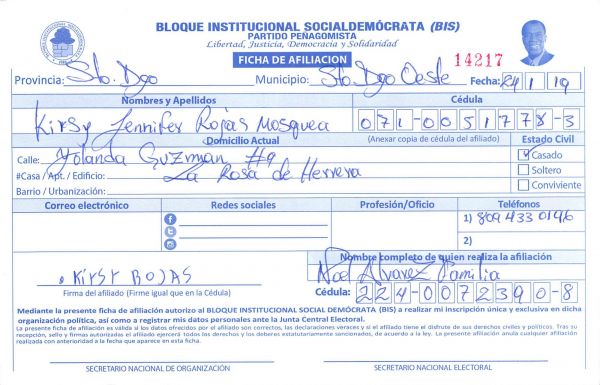 BLOQUE INSTITUCIONAL SOCIALDEMÓCRATA (BIS)
PARTIDO PEÑAGOMISTA
Libertad, Justicia, Democracia y Solidaridad
FICHA DE AFILIACION
14217
Provincia: Sto. Dgo Municipio: Sto Dgo Oeste Fecha: 24 1 19
Nombres y Apellidos Cédula
Kirsy Jennifer Rojas Mosquea 071-0051778-3
Domicilio Actual (Anexar copia de cédula del afiliado) Estado Civil
Calle: Yolanda Guzman #9 Casado
#Casa / Apt. / Edificio: La Rosa de Herrera Soltero
Barrio / Urbanización: Conviviente
Correo electrónico Redes sociales Profesión/Oficio Teléfonos
1) 809 433 0146
2)
Nombre completo de quien realiza la afiliación
KIRSY ROJAS Noel Alvarez Familia
Firma del afiliado (Firme igual que en la Cédula) Cédula: 224-0072390-8
Mediante la presente ficha de afiliación autorizo al BLOQUE INSTITUCIONAL SOCIAL DEMÓCRATA (BIS) a realizar mi inscripción única y exclusiva en dicha
organización política, así como a registrar mis datos personales ante la Junta Central Electoral.
La presente ficha de afiliación es válida si los datos ofrecidos por el afiliado son correctos, las declaraciones veraces y si el afiliado tiene el disfrute de sus derechos civiles y políticos. Tras su
recepción, sello y firmas autorizadas el afiliado ejercerá todos los derechos y los deberes estatutariamente sancionados, de acuerdo a la ley. La presente afiliación anula cualquier afiliación
realizada con anterioridad a la fecha que aparece en esta ficha.
SECRETARIO NACIONAL DE ORGANIZACIÓN SECRETARIO NACIONAL ELECTORAL